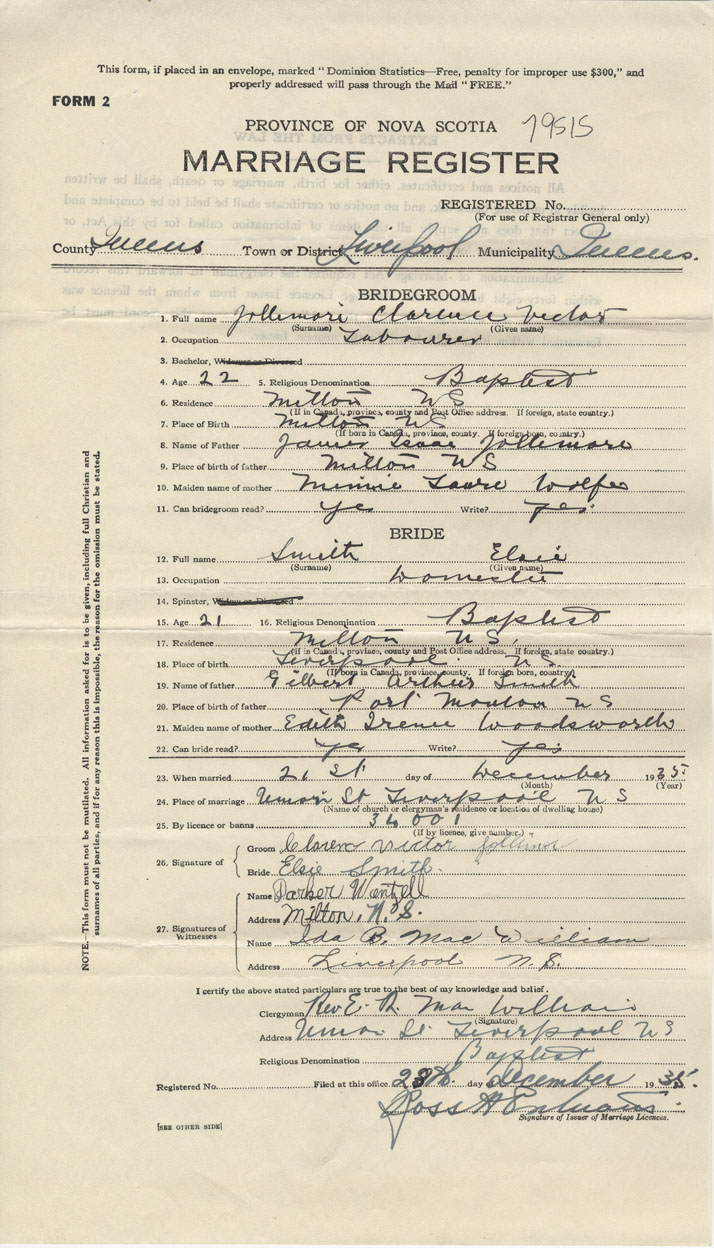 This form, if placed in an envelope, marked "Dominion Statistics—Free, penalty for improper use $300," and
properly addressed will pass through the Mail "FREE."
FORM 2
PROVINCE OF NOVA SCOTIA
MARRIAGE REGISTER
REGISTERED No.
(For use of Registrar General only)
County Queens Town or District Liverpool Municipality Queens.
BRIDEGROOM
1. Full name Jollimore Clarence Victor
(Surname) (Given name)
2. Occupation Labourer
3. Bachelor, Widower or Divorced
4. Age 22 5. Religious Denomination Baptist
6. Residence Milton NS
(If in Canada, province, county and Post Office address. If foreign, state country.)
7. Place of Birth Milton NS
(If born in Canada, province, county. If foreign born, country.)
8. Name of Father James Isaac Jollimore
9. Place of birth of father Milton NS
10. Maiden name of mother Minnie Laure Wolfe
11. Can bridegroom read? yes Write? yes.
BRIDE
12. Full name Smith Elsie
(Surname) (Given name)
13. Occupation Domestic
14. Spinster, Widow or Divorced
15. Age 21 16. Religious Denomination Baptist
17. Residence Milton NS.
(If in Canada, province, county and Post Office address. If foreign, state country.)
18. Place of birth Liverpool. NS
(If born in Canada, province, county. If foreign born, country)
19. Name of father Gilbert Arthur Smith
20. Place of birth of father Port Mouton NS
21. Maiden name of mother Edith Irene Woodsworth
22. Can bride read? yes Write? yes.
23. When married 21 St day of December 1935
(Month) (Year)
24. Place of marriage Union St Liverpool NS
(Name of church or clergyman's residence or location of dwelling house)
25. By licence or banns 34001
(If by licence, give number.)
26. Signature of
Groom Clarence Victor Jollimore
Bride Elsie Smith.
27. Signatures of Witnesses
Name Parker Wentzell
Address Milton, N.S.
Name Ida B. Mac William
Address Liverpool N.S.
I certify the above stated particulars are true to the best of my knowledge and belief.
Clergyman Rev. E. R. Mac William
(Signature)
Address Union St Liverpool NS
Religious Denomination Baptist
Registered No. Filed at this office 28th. day of December 1935.
Ross H
Signature of Issuer of Marriage Licences.
[SEE OTHER SIDE]
NOTE.—This form must not be mutilated. All information asked for is to be given, including full Christian and
surnames of all parties, and if for any reason this is impossible, the reason for the omission must be stated.